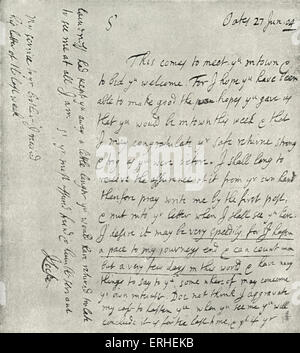 Oates 27 Jun. 04
Sr
This comes to meet you in town
& to bid you welcome. For I hope you have been
able to make good the hopes you gave us
that you would be in town this week & that
I may congratulate yr safe return strong
I shall long to
receive the assurance of it from yr own hand
therefore pray write me by the first post,
& put into yr letter when I shall see yr here
I desire it may be very speedily, for I
a pace to my journeys end & can count upon
but a very few days in this world & have many
things to say to you some where of may concern
yr own interest. Doe not think I aggravate
my case to hasten you when you see me yu will
conclude it
had kept you away a little longer yu would have returned to late
to see me at all I am
Sr yr most humble servant
J Locke
My service to
his
alamy
ERHEKB
www.alamy.com